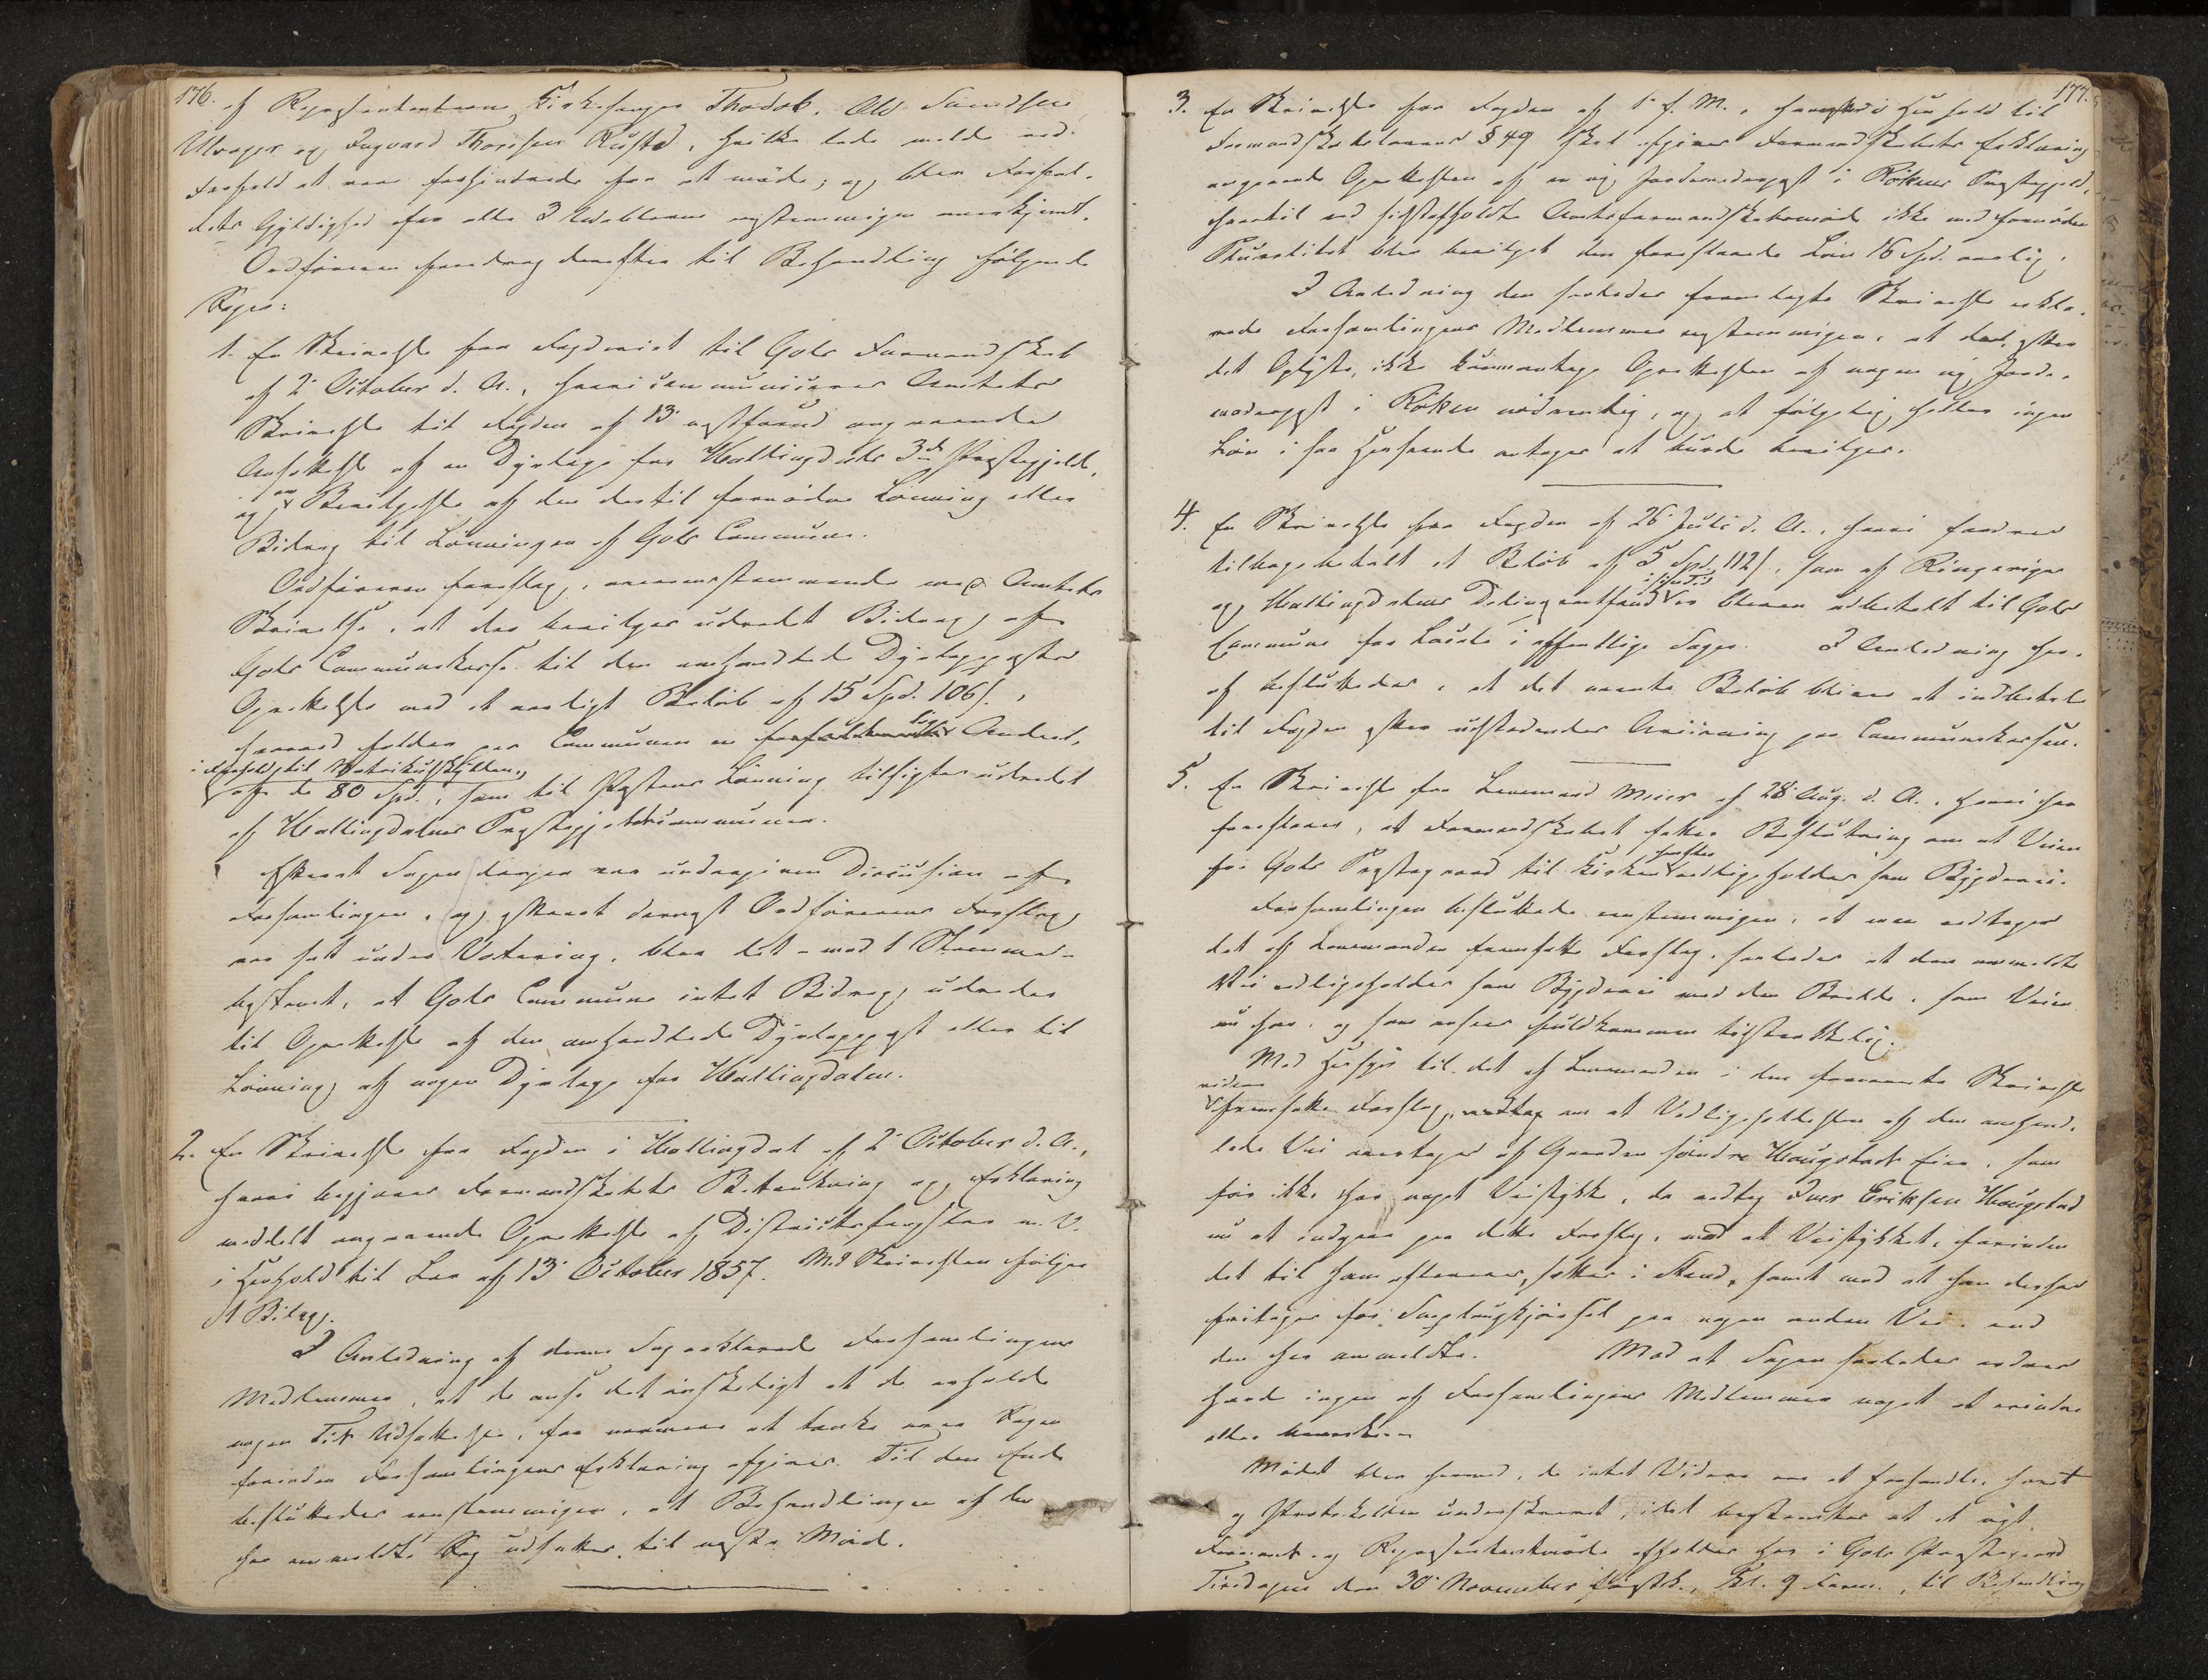 176.
af Repræsentanterne Kirkesanger Thodok. Ole Svendsen
Ulvager og Ingvard Thoresen Rustad, hvilke lode melde ved-
Forfald at være forhindrede fra at møde; og blev Forfal-
dets Gyldighed for alle 3 Udeblevne eenstemmigen anerkjendt.
Ordføreren foredrog derefter til Behandling følgende
Sager:
1. En Skrivelse fra Fogderiet til Gols Formandskab
af 2 October d. A., hvori communiceres Amtets
Skrivelse til Fogden af 13 næstforud angaaende
Ansættelse af en Dyrlæge for Hallingdals 3de Præstegjeld,
og om Bevilgelse af den dertil fornødne Lønning eller
Bidrag til Lønningen af Gols Commune.
Ordføreren foreslog, overensstemmende med Amtets
Skrivelse, at der bevilges udredet Bidrag af
Gols Communekasse til den omhandlede Dyrlægeposts
Oprettelse med et aarligt Beløb af 15 Spd. 106 s.,
hvorved falder paa Communen en forholdsmæssig Andeel,
i Forhold til Matrikulskylden,
af de 80 Spd., som til Postens Lønning tilsigtes udredet
af Hallingdalens Præstegjeldscommuner.
Efterat Sagen derpaa var undergiven Discussion af
Forsamlingen, og efterat dernæst Ordførerens Forslag
var sat under Votering, blev det – mod 1 Stemme –
bestemt, at Gols Commune intet Bidrag udreder
til Oprettelse af den omhandlede Dyrlægepost eller til
Lønning af nogen Dyrlæge for Hallingdalen.
2. En Skrivelse fra Fogden i Hallingdal af 2 October d. A.,
hvori begjæres Formandskabets Betænkning og Erklæring
meddelt angaaende Oprettelse af Districtsfængsler m. V.
i Henhold til Lov af 13 October 1857. Med Skrivelsen følger
1 Bilag.
I Anledning af denne Sag erklærede Forsamlingens
Medlemmer, at de ansee det ønskeligt at de erholde
nogen Tids Udsættelse, for nærmere at tænke over Sagen
forinden Forsamlingens Erklæring afgives. Til den Ende
besluttedes eenstemmigen, at Behandlingen af den
her ommeldte Sag udsættes til næste Møde.
177.
3. En Skrivelse fra Fogden af 1 f. M., hvorefter i Henhold til
Formandskabslovens § 49 skal afgives Formandskabets Erklæring
angaaende Oprettelsen af en ny Jordemoderpost i Røkens Præstegjeld,
hvortil ved sidstafholdte Amtsformandskabsmøde ikke med fornøden
Pluralitet blev bevilget den foreslaaede Løn 16 Spd. aarlig.
I Anledning den saaledes fremlagte Skrivelse erklæ-
rede Forsamlingens Medlemmer eenstemmigen, at den, efter
det Oplyste, ikke kan antage Oprettelsen af nogen ny Jorde-
moderpost i Røken nødvendig, og at følgelig heller ingen
Løn i saa Henseende antages at burde bevilges.
4. En Skrivelse fra Fogden af 26 Juli d. A., hvori fordres
tilbagebetalt et Beløb af 5 Spd. 112 s., som af Ringeriges
og Hallingdalens Delinqventfond i sin Tid er bleven udbetalt til Gols
Commune for Skyds i offentlige Sager. I Anledning her-
af besluttedes, at det nævnte Beløb bliver at indbetale
til Fogden efter udstedendes Anviisning paa Communekassen.
5. En Skrivelse fra Lensmand Meier af 28 Aug. d. A., hvori han
foreslaaer, at Formandskabet fatter Beslutning om at Veien
fra Gols Præstegaard til Kirken herefter vedligeholdes som Bygdevei.
Forsamlingen besluttede eenstemmigen, at man vedtager
det af Lensmanden fremsatte Forslag, saaledes at den ommeldte
Vei vedligeholdes som Bygdevei med den Bredde, som Veien
nu har, og som ansees fuldkommen tilstrækkelig.
Med Hensyn til det af Lensmanden i den fornævnte Skrivelse
videre fremsatte Forslag, om at Vedligeholdelsen af den omhand-
lede Vei overtages af Gaarden søndre Haugstads Eier, som
før ikke har noget Veistykke, da vedtog Iver Eriksen Haugstad
nu at indgaae paa dette Forslag, mod at Veistykket, forinden
det til ham afleveres, sættes i Stand, samt mod at han derhos
fritages for Sneplougkjørsel paa nogen anden Vei, end
den her ommeldte. Mod at Sagen saaledes ordnes
havde ingen af Forsamlingens Medlemmer noget at erindre
eller bemærke.
Mødet blev hermed, da intet Videre var at forhandle, hævet
og Protokollen underskrevet, idet bestemtes at et nyt
Formands- og Repræsentantmøde afholdes her i Gols Præstegaard
Tirsdagen den 30 November førstk., Kl. 9 Form., til Behandling